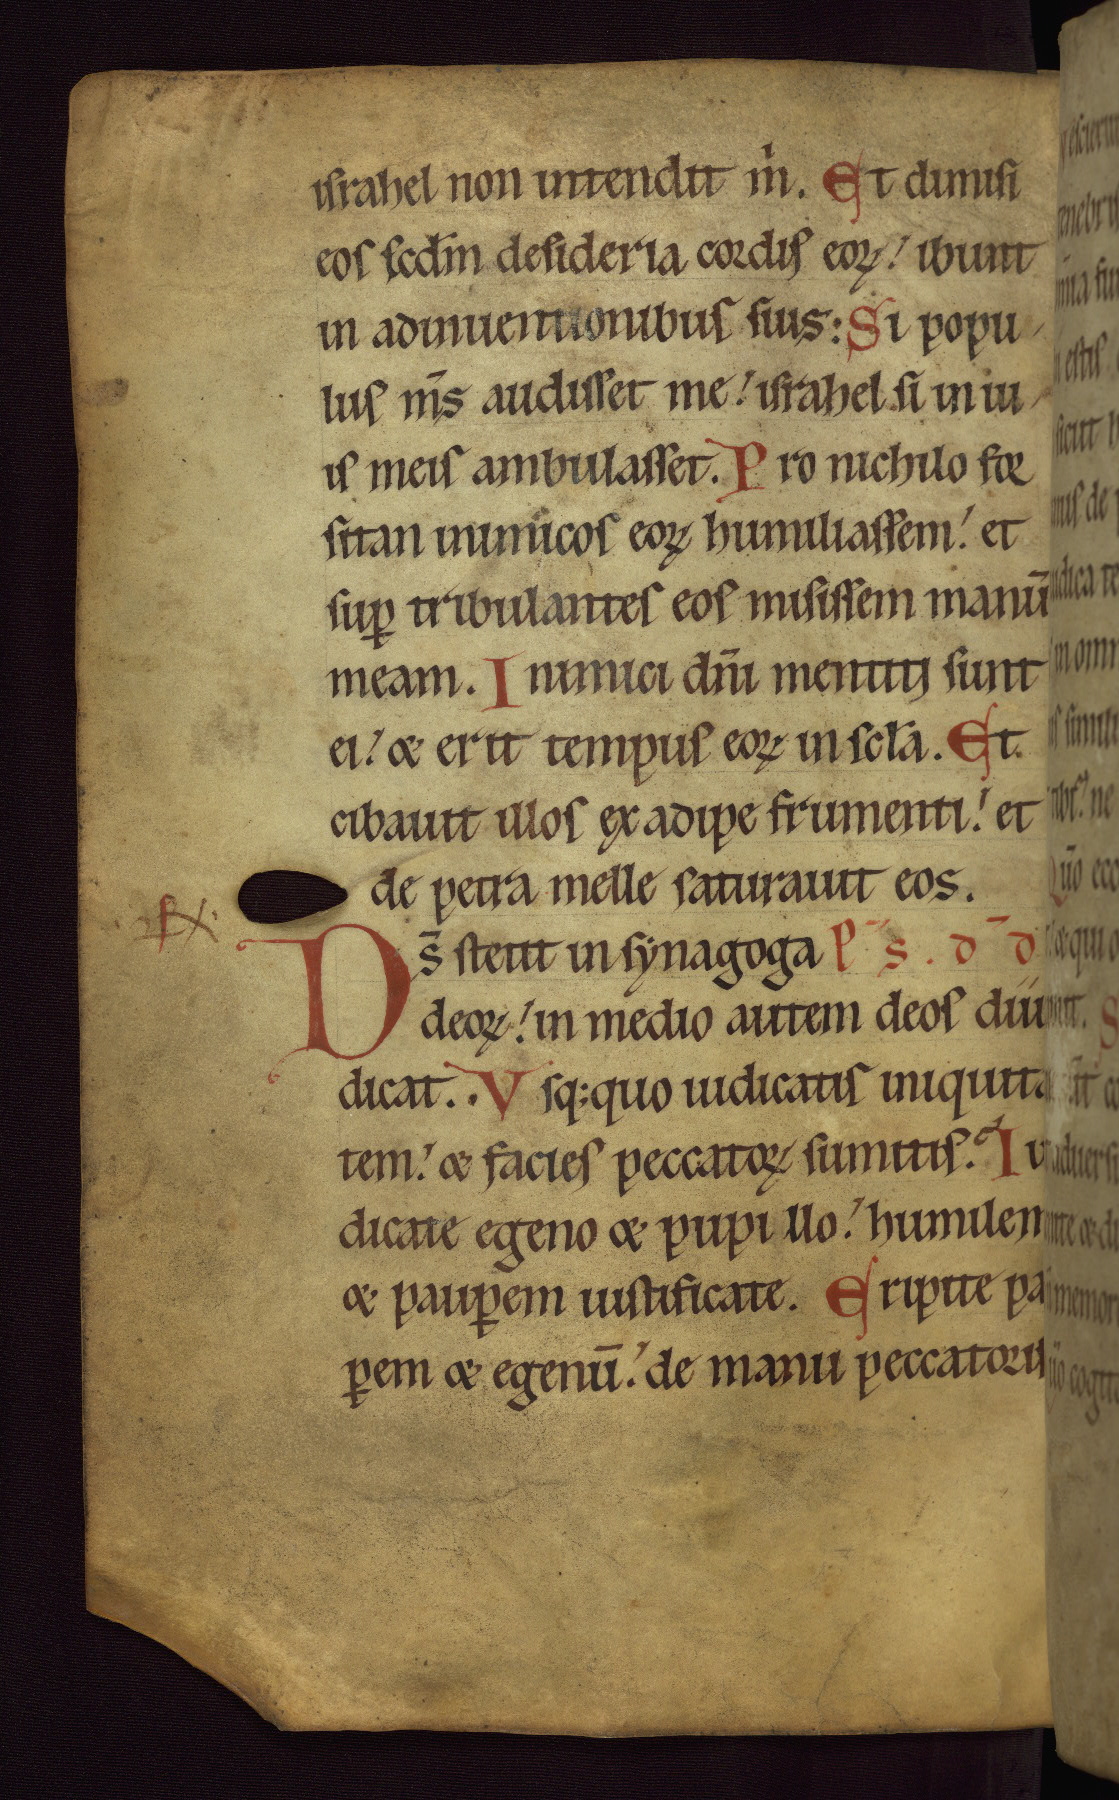 israhel non intendit m̄. Et dimisi
eos scdm̄ desideria cordis eoꝝ! ibunt
in adinuentionibus suis: Si popu-
lus m̄s audisset me! israhel si in iu-
is meis ambulasset. Pro nichilo for
sitan inimicos eoꝝ humiliassem! et
suꝑ tribulantes eos misissem manū
meam. Inimici dn̄i mentitj sunt
ei! & erit tempus eoꝝ in scła. Et
cibauit illos ex adipe frumenti! et
de petra melle saturauit eos.
Ds̄ stetit in synagoga P̄ s. d̄ d
deoꝝ! in medio autem deos diiu
dicat. Vsq:quo iudicatis iniquita
tem! & facies peccatoꝝ sumitis. Iu
dicate egeno & pupillo! humilem
& pauꝑem iustificate. Eripite pa
ꝑem & egenū! de manu peccatoru